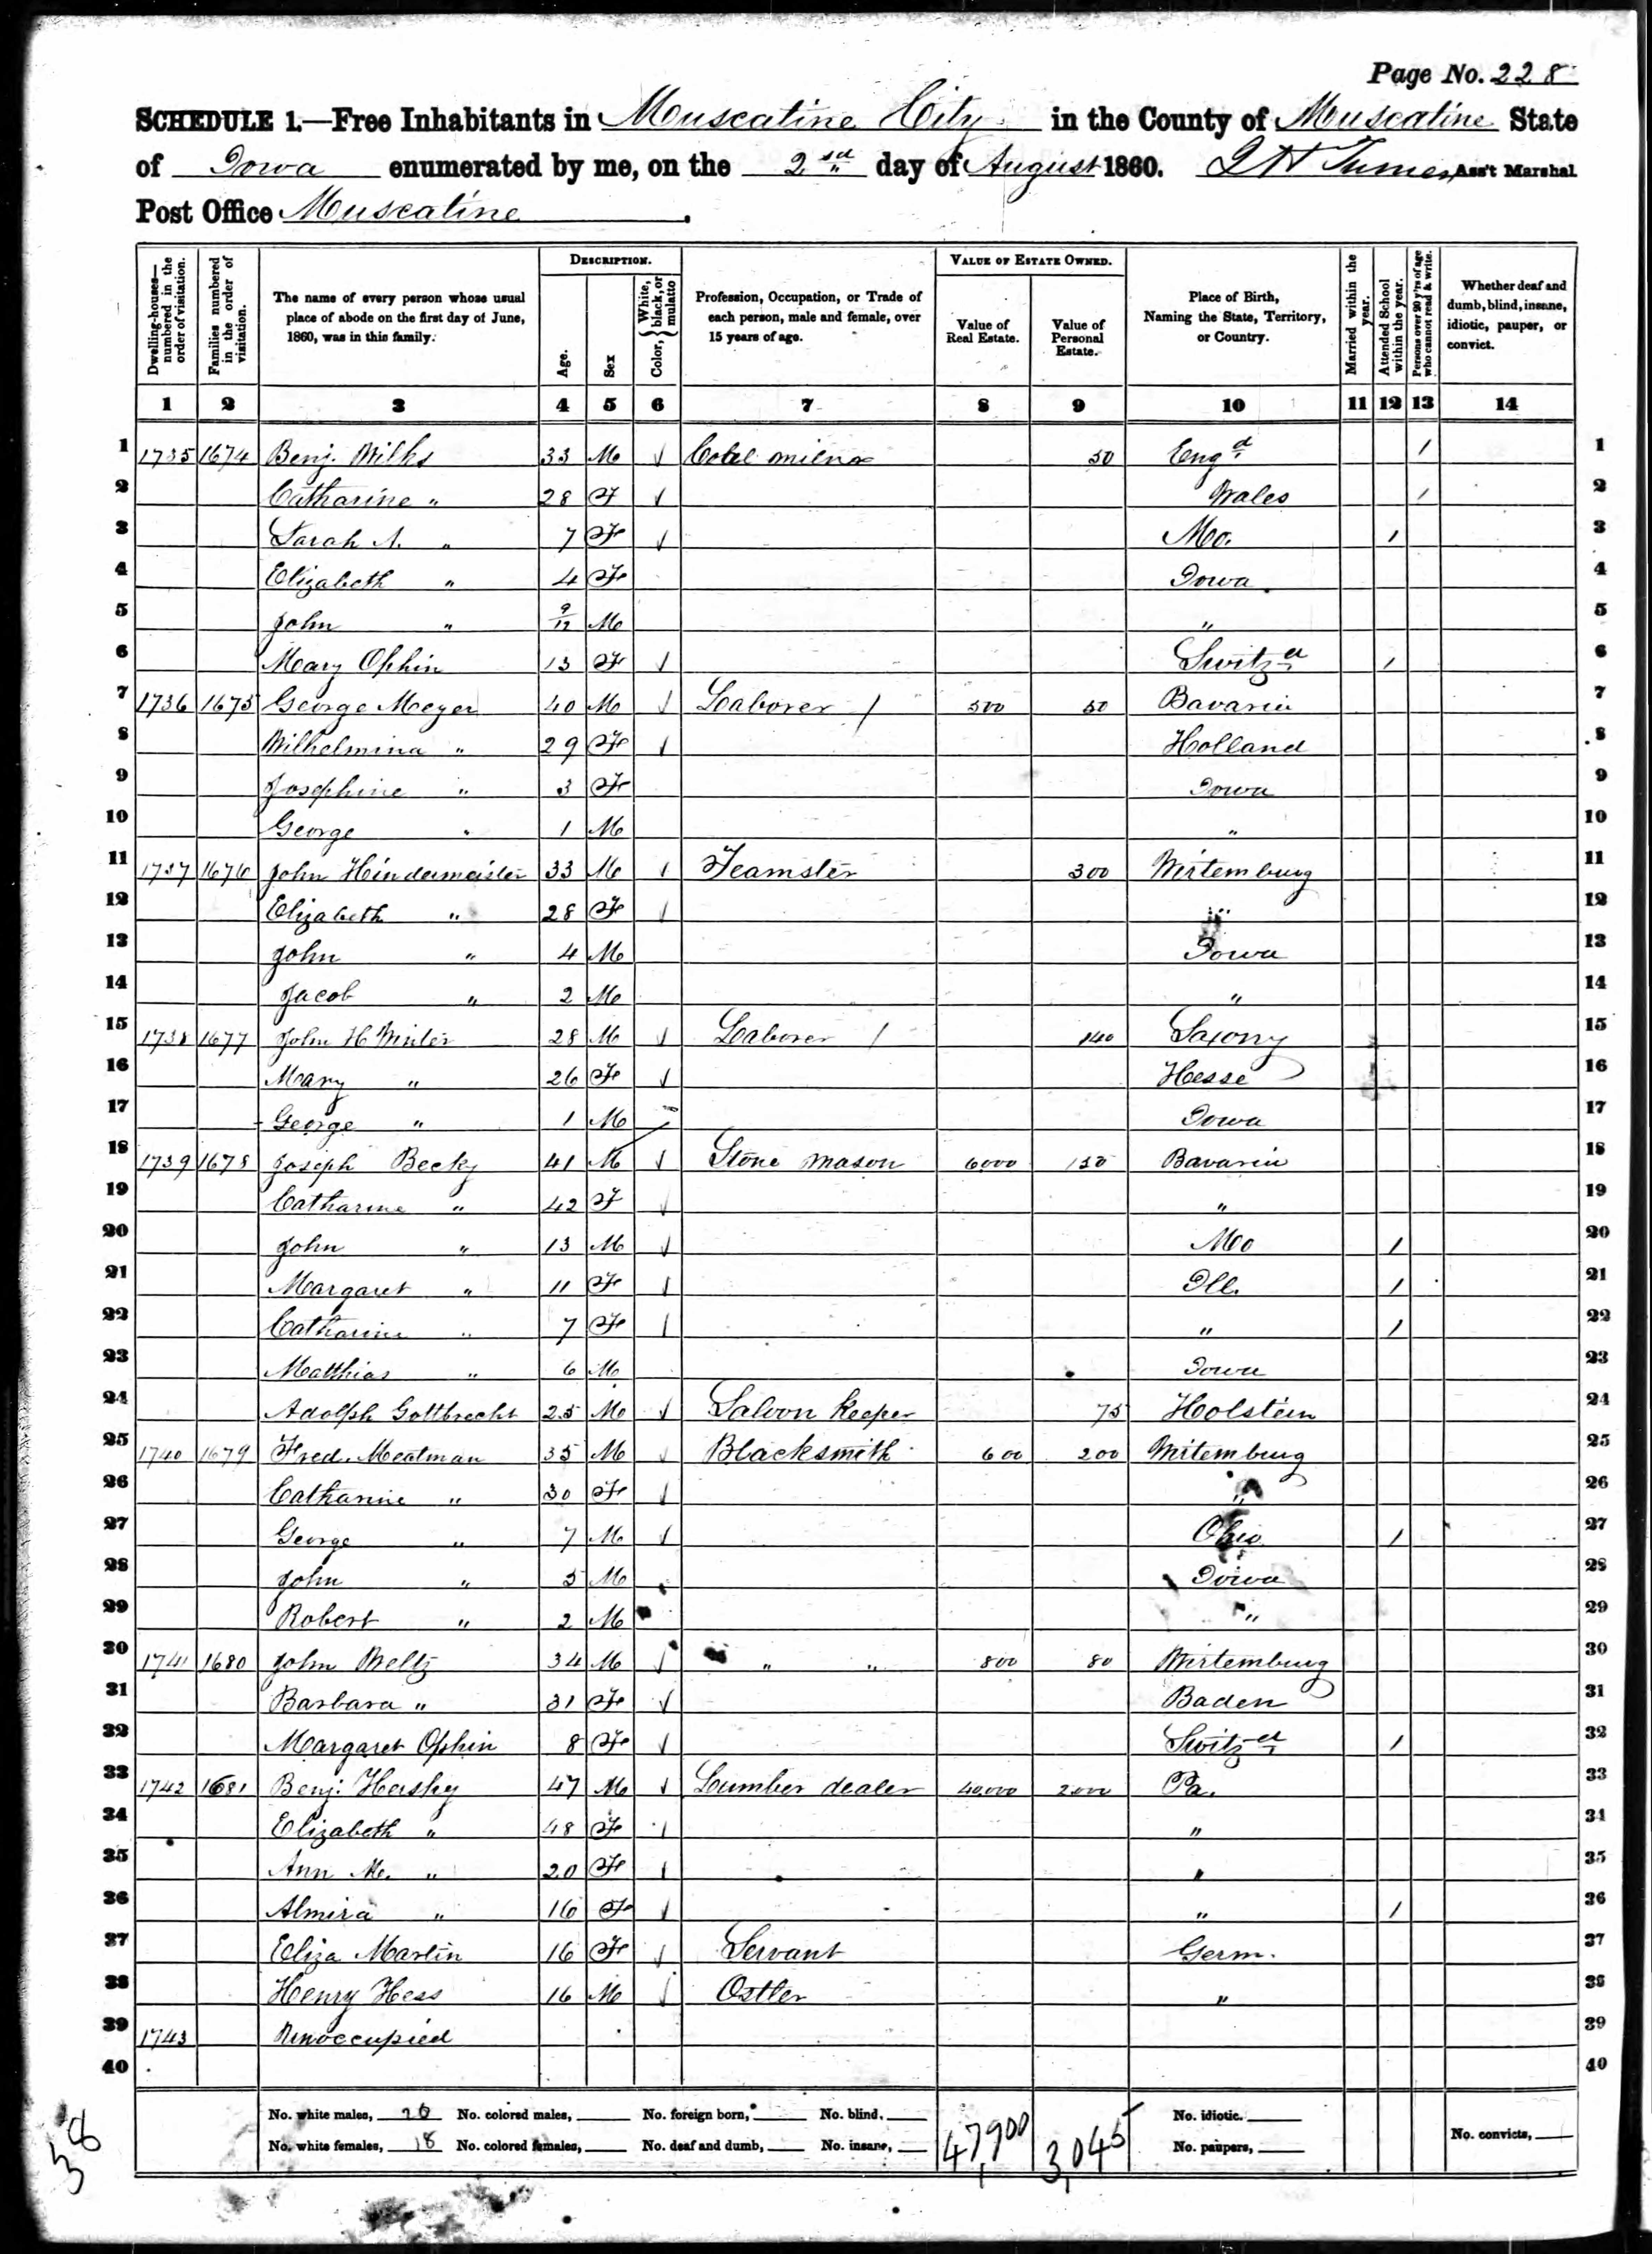 Page No. 228
SCHEDULE 1.—Free Inhabitants in Muscatine City in the County of Muscatine State
of Iowa enumerated by me, on the 2nd day of August 1860. Turner Ass't Marshal
Post Office Muscatine.
Dwelling-houses—numbered in the order of visitation. Families numbered in the order of visitation. The name of every person whose usual place of abode on the first day of June, 1860, was in this family. DESCRIPTION. Age. Sex Color, { White, black, or mulatto Profession, Occupation, or Trade of each person, male and female, over 15 years of age. VALUE OF ESTATE OWNED. Value of Real Estate. Value of Personal Estate. Place of Birth, Naming the State, Territory, or Country. Married within the year. Attended School within the year. Persons over 20 y'rs of age who cannot read & write. Whether deaf and dumb, blind, insane, idiotic, pauper, or convict.
1 2 3 4 5 6 7 8 9 10 11 12 13 14
1 1735 1674 Benj. Wilks 33 M 50 Engd / 1
2 Catharine " 28 F Wales / 2
3 Sarah A. " 7 F Mo. / 3
4 Elizabeth " 4 F Iowa 4
5 John " 9/12 M " 5
6 Mary Ophin 13 F Switzd / 6
7 1736 1675 George Meyer 40 M Laborer / 500 50 Bavaria 7
8 Wilhelmina " 29 F Holland 8
9 Josephine " 3 F Iowa 9
10 George " 1 M " 10
11 1737 1676 John Hindermeister 33 M Teamster 300 Wirtemburg 11
12 Elizabeth " 28 F " 12
13 John " 4 M Iowa 13
14 Jacob " 2 M " 14
15 1738 1677 John H Winter 28 M Laborer / 140 Saxony 15
16 Mary " 26 F Hesse 16
17 George " 1 M Iowa 17
18 1739 1678 Joseph Becky 41 M Stone mason 6000 150 Bavaria 18
19 Catharine " 42 F " 19
20 John " 13 M Mo / 20
21 Margaret " 11 F Ill. / 21
22 Catharine " 7 F " / 22
23 Matthias " 6 M Iowa 23
24 Adolph Gottbrecht 25 M Saloon Keeper 75 Holstein 24
25 1740 1679 Fred. Meatman 35 M Blacksmith 600 200 Wirtemburg 25
26 Catharine " 30 F " 26
27 George " 7 M Ohio / 27
28 John " 5 M Iowa 28
29 Robert " 2 M " 29
30 1741 1680 John Weltz 34 M " " 800 80 Wirtemburg 30
31 Barbara " 31 F Baden 31
32 Margaret Ophin 8 F Switzd / 32
33 1742 1681 Benj. Hershey 47 M Lumber dealer 40,000 2000 Pa. 33
34 Elizabeth " 48 F " 34
35 Ann M. " 20 F " 35
36 Almira " 16 F " / 36
37 Eliza Martin 16 F Servant Germ. 37
38 Henry Hess 16 M Ostler " 38
39 1743 Unoccupied 39
40 40
No. white males, 20 No. colored males, No. foreign born, No. blind, 47,900 3,045 No. idiotic.
No. white females, 18 No. colored females, No. deaf and dumb, No. insane, No. paupers, No. convicts,
38